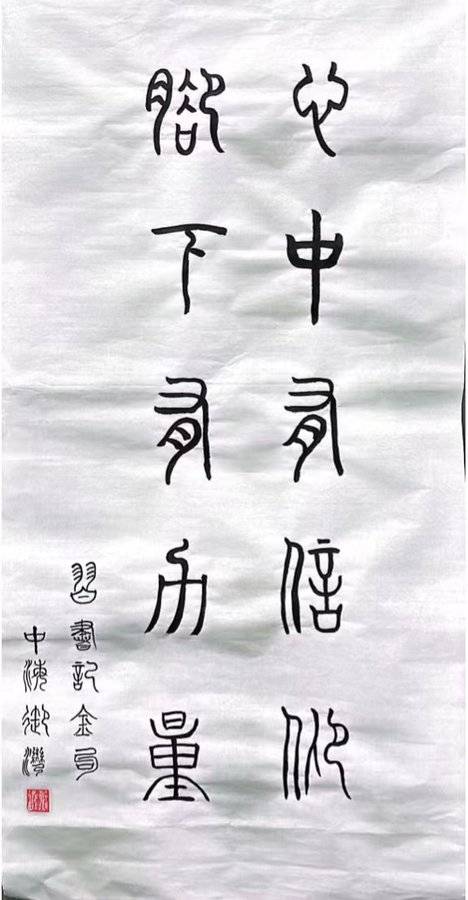 心中有信仰
腳下有力量
習書記金句
中海御灣